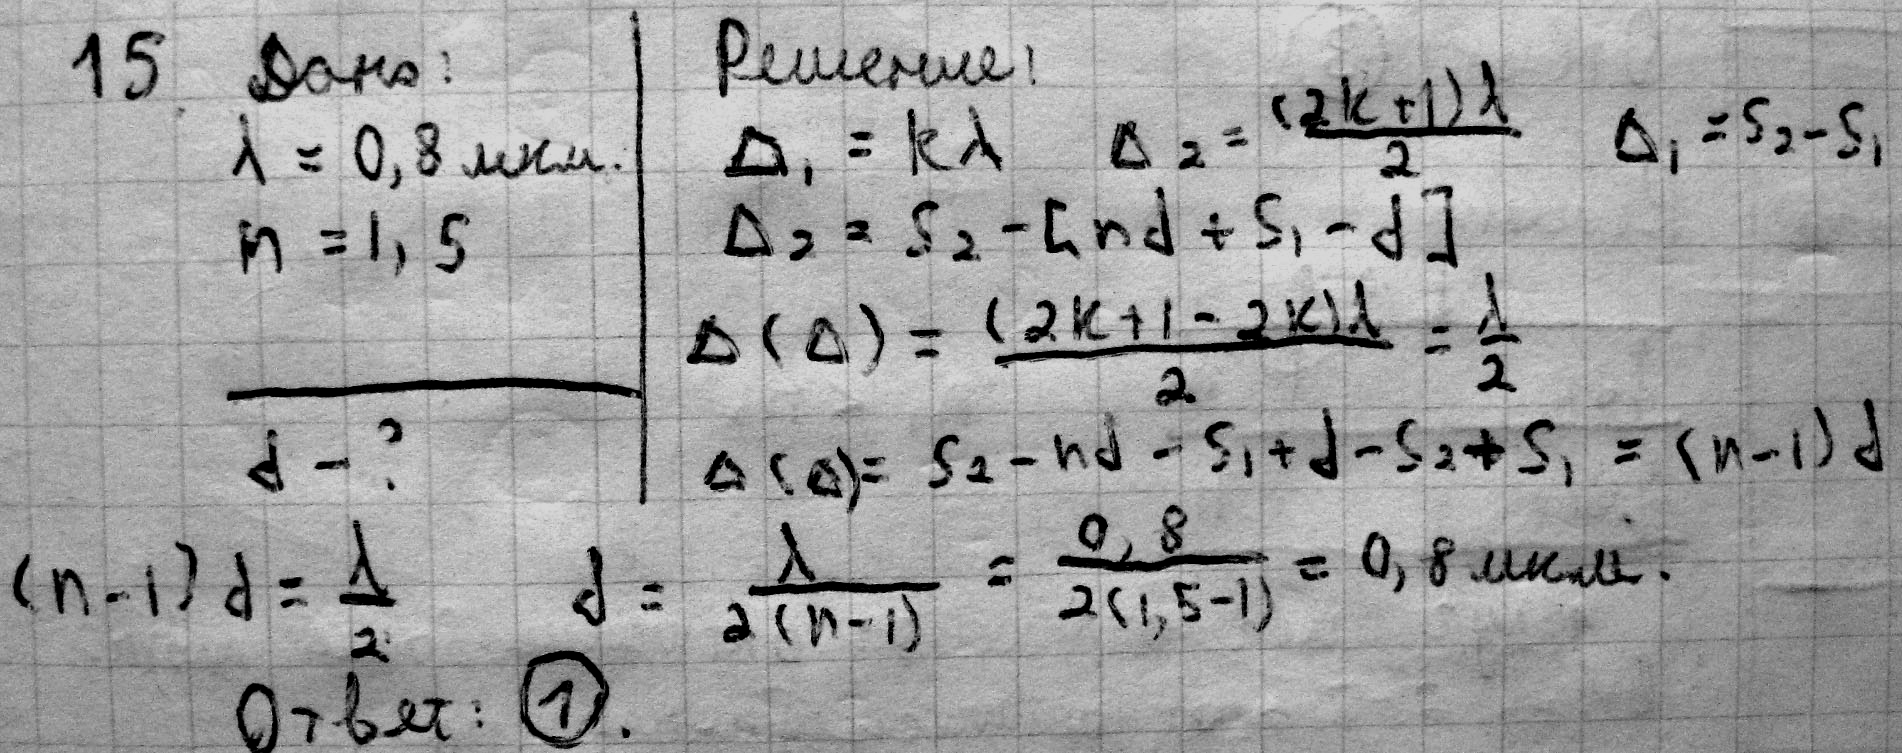 15. Дано:
λ = 0,8 мкм.
n = 1,5
d - ?
Решение:
Δ₁ = kλ Δ₂ = (2k+1)λ/2 Δ₁ = S₂ - S₁
Δ₂ = S₂ - [nd + S₁ - d]
Δ(Δ) = (2k+1-2k)λ/2 = λ/2
Δ(Δ) = S₂ - nd - S₁ + d - S₂ + S₁ = (n-1)d
(n-1)d = λ/2 d = λ/2(n-1) = 0,8/2(1,5-1) = 0,8 мкм.
Ответ: ①.